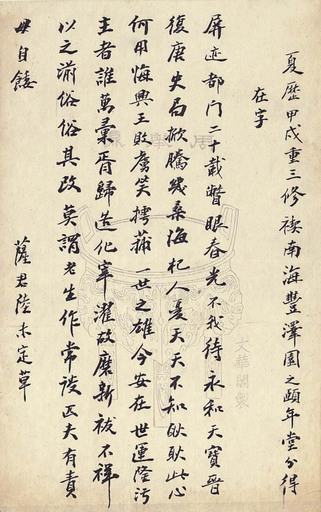 夏歷甲戌重三修禊南海豐澤園之頤年堂分得
在字
屏迹都門二十載瞥眼春光不我待永和天寶晉
復唐史局掀騰幾桑海杞人憂天天不知耿耿此心
何用悔興王敗虜笑摴蒱一世之雄今安在世運隆污
主者誰萬彙胥歸造化宰濯故靡新祓不祥
以之湔俗俗其改莫謂老生作常談匹夫有責
毋自餒
薩君陸未定草